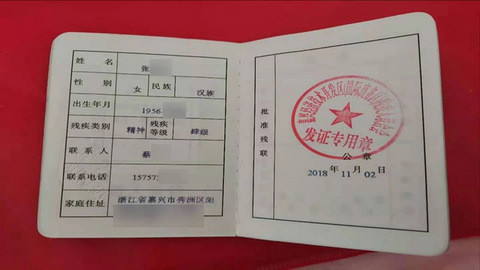 姓 名 张
性 别 女 民族 汉族
出生年月 1956
残疾类别 精神 残疾等级 肆级
联 系 人 蔡
联系电话 15757
家庭住址 浙江省嘉兴市秀洲区闻
批准残联
发证专用章
公 章
2018 年 11 月 02 日